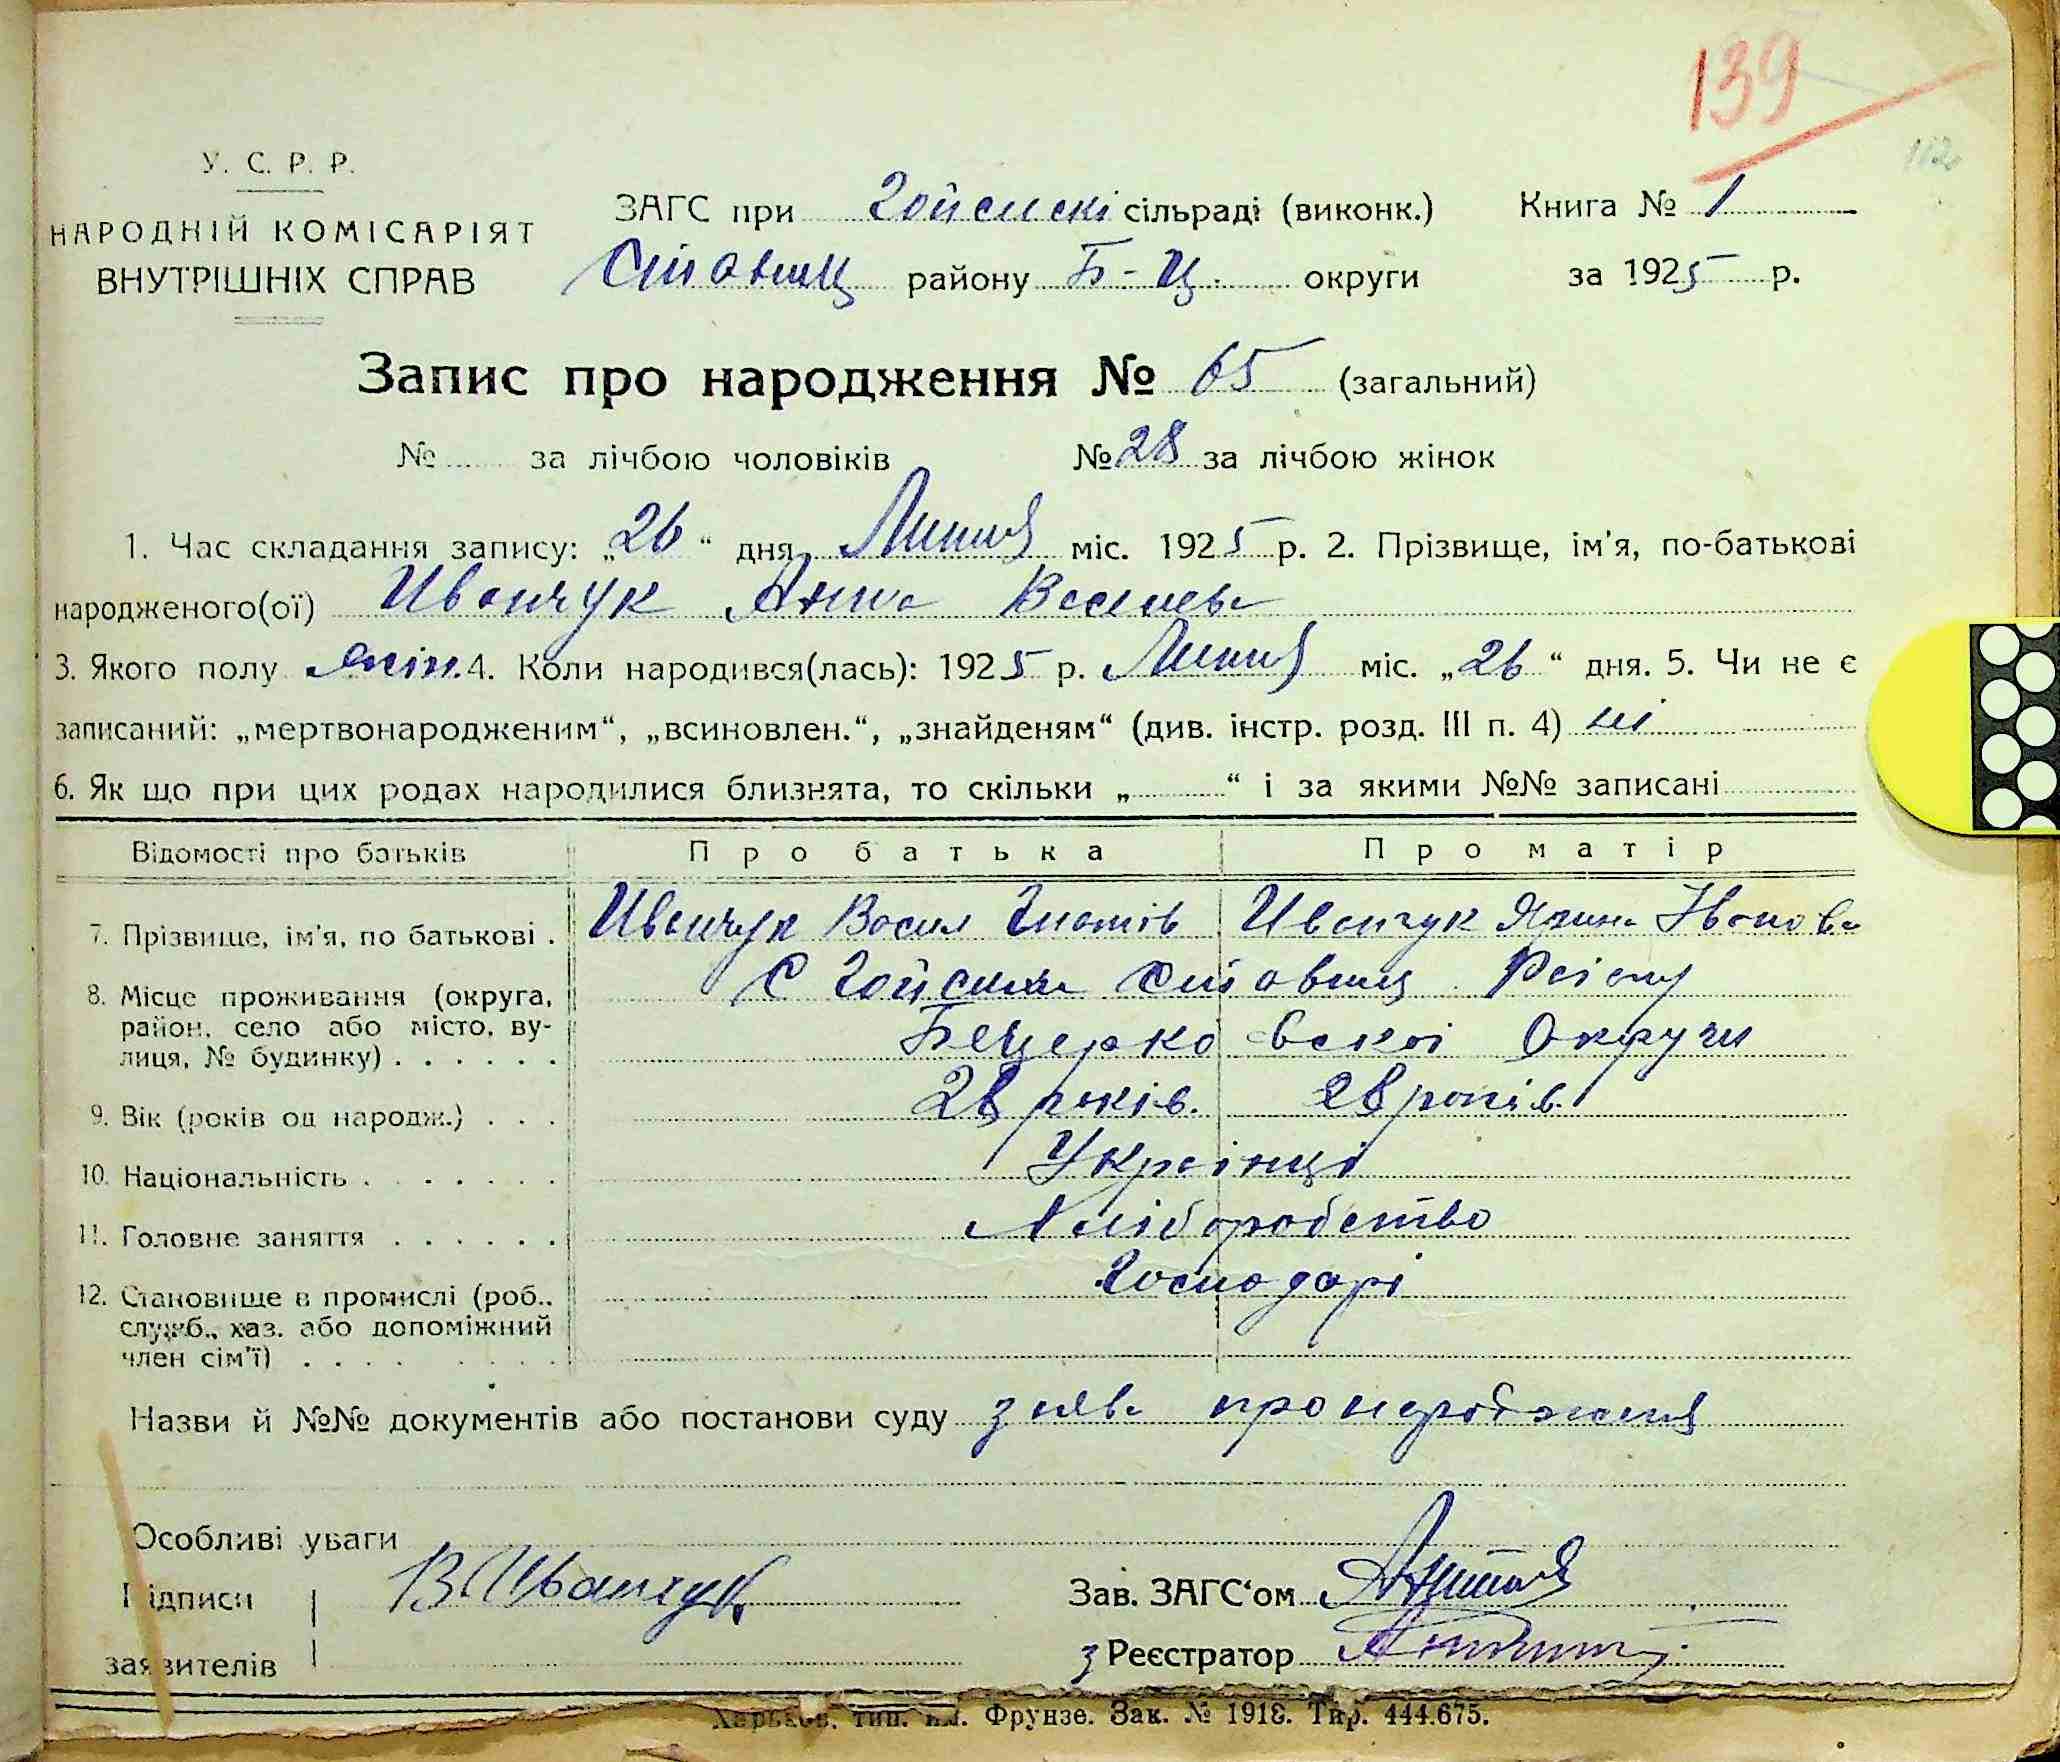 139
112
У. С. Р. Р.
НАРОДНІЙ КОМІСАРІЯТ
ВНУТРІШНІХ СПРАВ
ЗАГС при Гойсискі сільраді (виконк.) Книга № 1
Ставищ району Б-Ц. округи за 1925 р.
Запис про народження № 65 (загальний)
№ за лічбою чоловіків № 28 за лічбою жінок
1. Час складання запису: „26“ дня Липня міс. 1925 р. 2. Прізвище, ім'я, по-батькові
народженого(ої) Иванчук Анна Василева
3. Якого полу жін. 4. Коли народився(лась): 1925 р. Липня міс. „26“ дня. 5. Чи не є
записаний: „мертвонародженим“, „всиновлен.“, „знайденям“ (див. інстр. розд. III п. 4) ні
6. Як що при цих родах народилися близнята, то скільки „ “ і за якими №№ записані
Відомості про батьків Про батька Про матір
7. Прізвище, ім'я, по батькові . Иванчук Васил Гнатів Иванчук Ярина Івановa
8. Місце проживання (округа, С Ставищ Раіону
район, село або місто, ву-
лиця, № будинку) . . . . . . Бецерко вскоі Округи
9. Вік (років од народж.) . . . 28 років. 28 років.
10. Національність . . . . . . . Украінці
11. Головне заняття . . . . . . Хліборобство
12. Становище в промислі (роб., Господарі
служб., хаз. або допоміжний
член сім'ї) . . . . . . . . .
Назви й №№ документів або постанови суду заява про народження
Особливі уваги
Підписи В Иванчук
Зав. ЗАГС'ом
заявителів
з Реєстратор
Харьков, тип. им. Фрунзе. Зак. № 1918. Тир. 444.675.